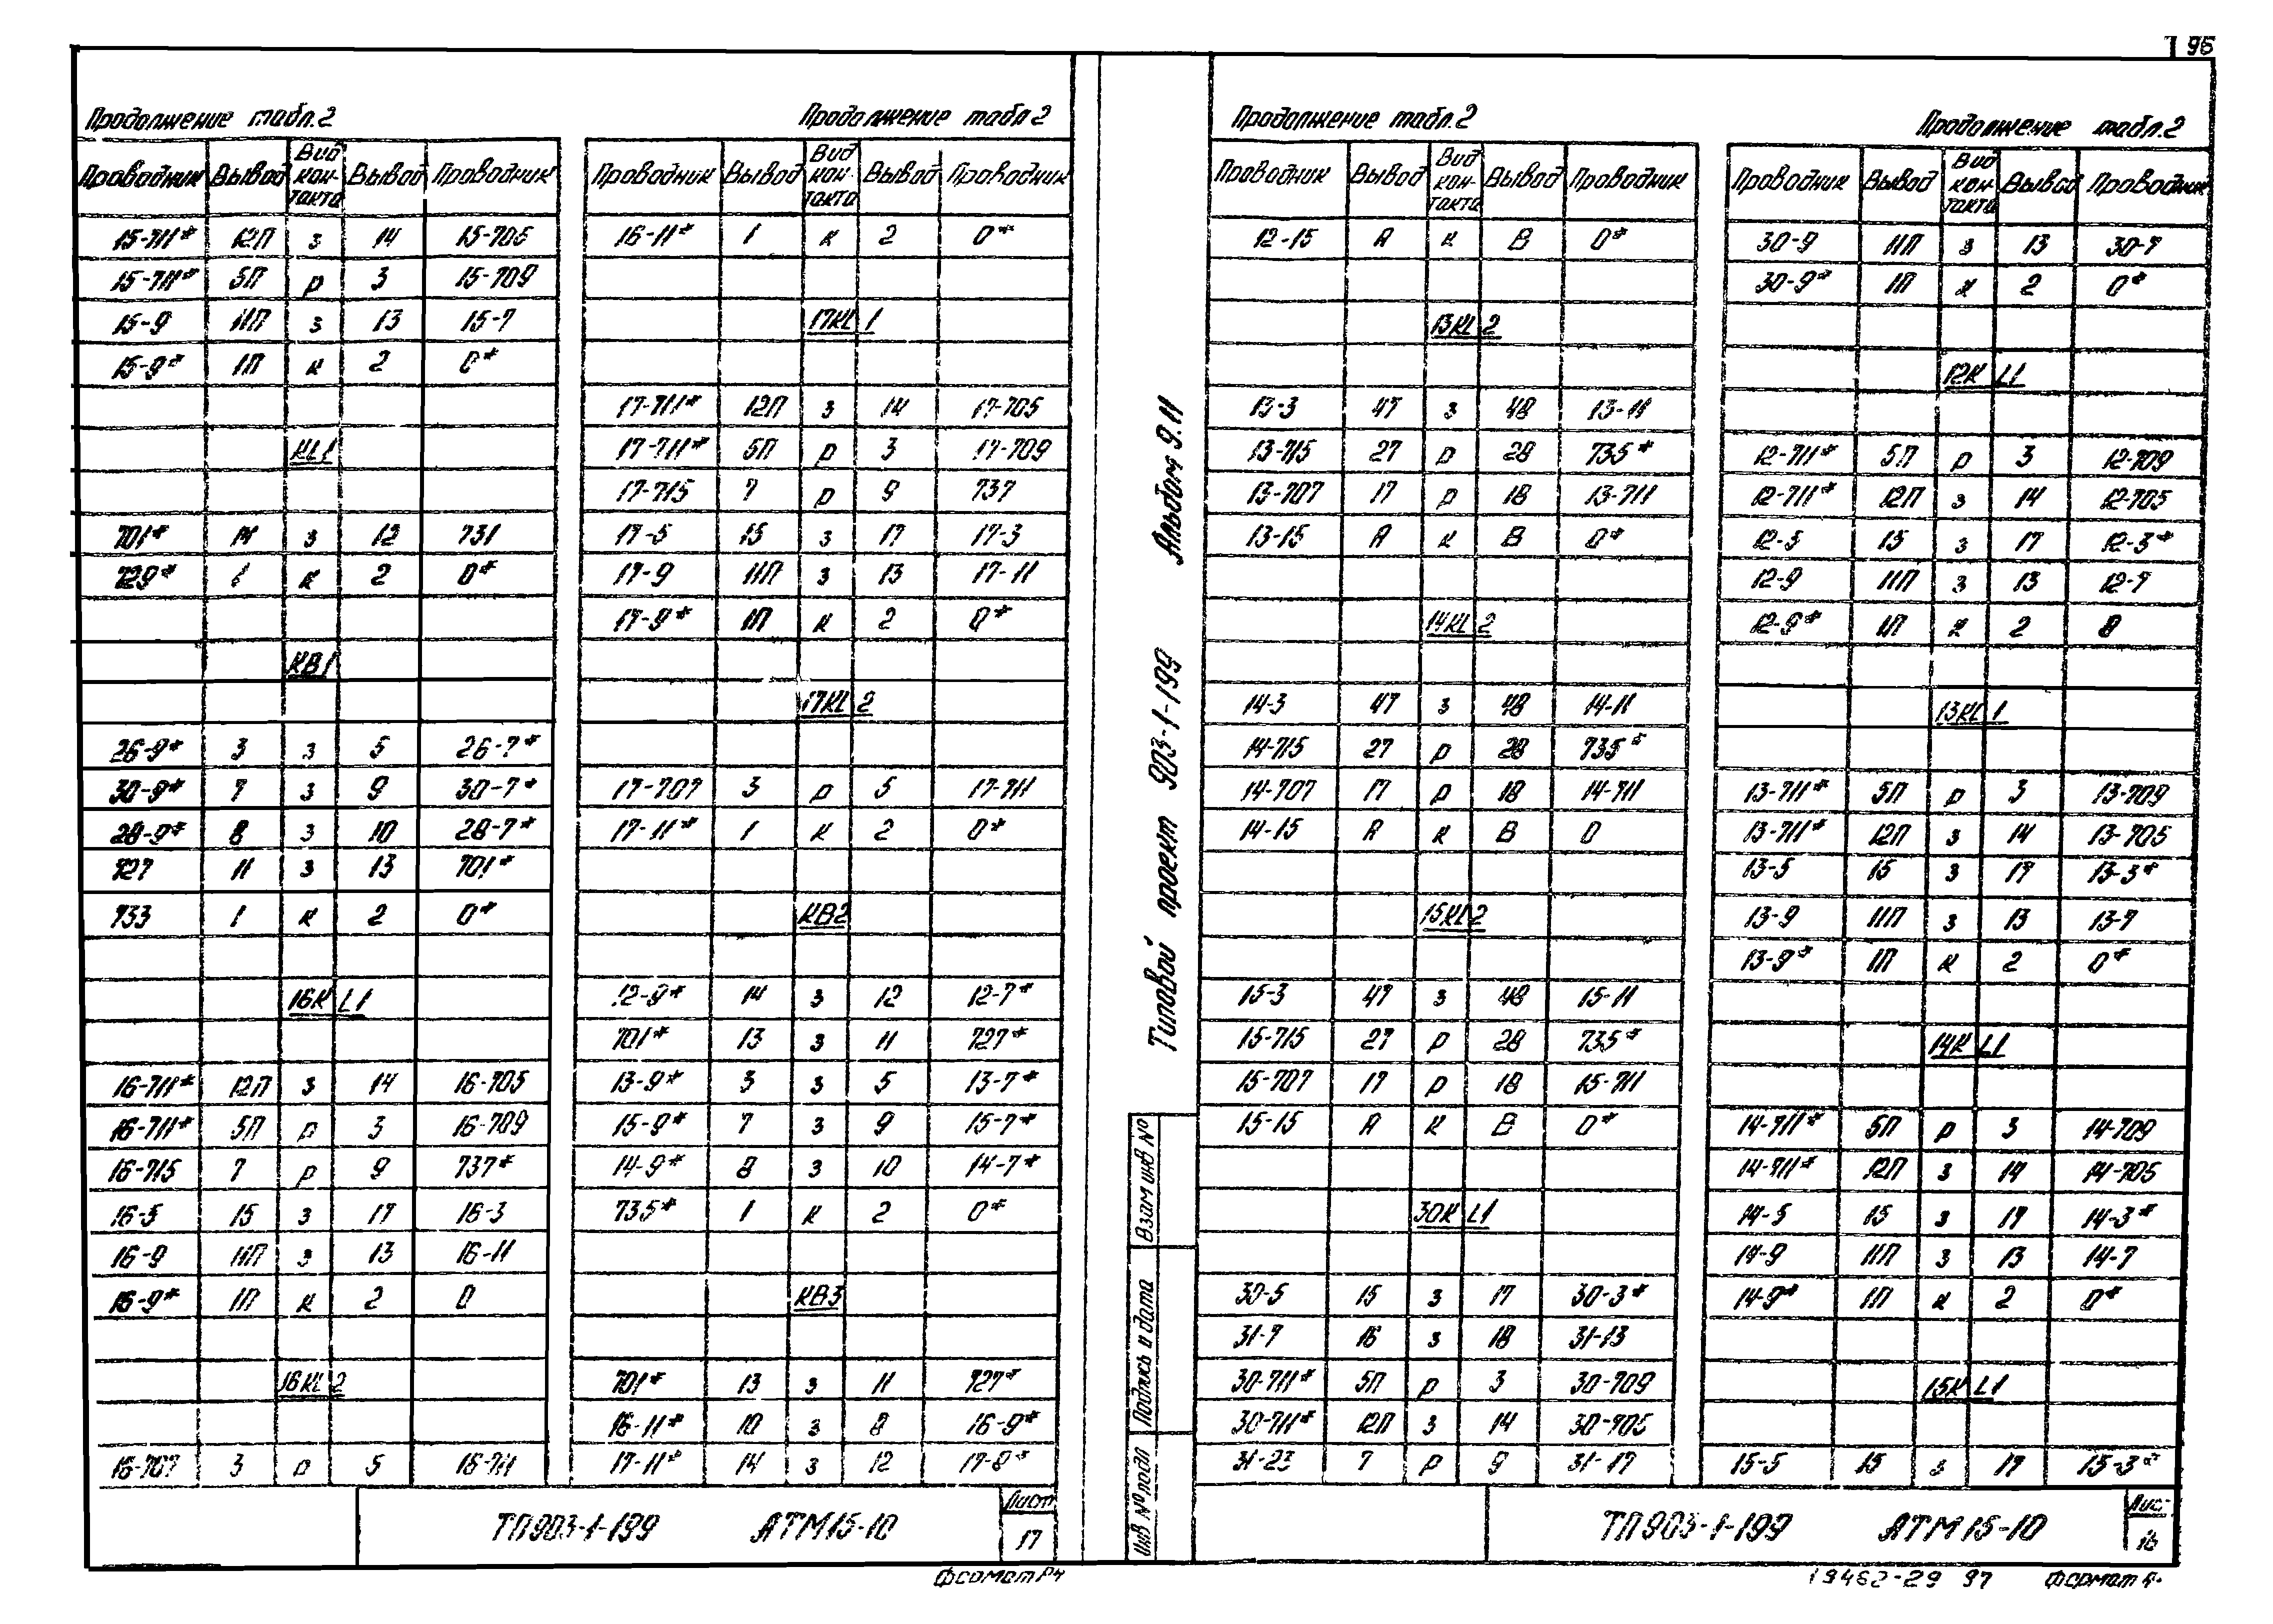 96
Продолжение табл.2
Проводник Вывод Вид контакта Вывод Проводник
15-711* 12П з 14 15-705
15-711* 5П р 3 15-709
15-9 11П з 13 15-7
15-9* 1П к 2 0*
KL1
701* 14 з 12 731
729* 1 к 2 0*
КВ1
26-9* 3 з 5 26-7*
30-9* 7 з 9 30-7*
28-9* 8 з 10 28-7*
727 11 з 13 701*
733 1 к 2 0*
16KL1
16-711* 12П з 14 16-705
16-711* 5П р 3 16-709
16-715 7 р 9 737*
16-5 15 з 17 16-3
16-9 11П з 13 16-11
16-9* 1П к 2 0
16KL2
16-707 3 р 5 16-711
Продолжение табл 2
Проводник Вывод Вид контакта Вывод Проводник
16-11* 1 к 2 0*
17KL1
17-711* 12П з 14 17-705
17-711* 5П р 3 17-709
17-715 7 р 9 737
17-5 15 з 17 17-3
17-9 11П з 13 17-11
17-9* 1П к 2 0*
17KL2
17-707 3 р 5 17-711
17-11* 1 к 2 0*
КВ2
12-9* 14 з 12 12-7*
701* 13 з 11 727*
13-9* 3 з 5 13-7*
15-9* 7 з 9 15-7*
14-9* 8 з 10 14-7*
735* 1 к 2 0*
КВ3
701* 13 з 11 727*
16-11* 10 з 8 16-9*
17-11* 14 з 12 17-9*
ТП903-1-199 АТМ15-10
Лист
17
Формат А4
Альбом 9.11
Типовой проект 903-1-199
Взам инв №
Подпись и дата
Инв № подл
Продолжение табл.2
Проводник Вывод Вид контакта Вывод Проводник
12-15 А к В 0*
13KL2
13-3 47 з 48 13-11
13-715 27 р 28 735*
13-707 17 р 18 13-711
13-15 А к В 0*
14KL2
14-3 47 з 48 14-11
14-715 27 р 28 735*
14-707 17 р 18 14-711
14-15 А к В 0
15KL2
15-3 47 з 48 15-11
15-715 27 р 28 735*
15-707 17 р 18 15-711
15-15 А к В 0*
30KL1
30-5 15 з 17 30-3*
31-7 16 з 18 31-13
30-711* 5П р 3 30-709
30-711* 12П з 14 30-705
31-23 7 р 9 31-17
Продолжение табл.2
Проводник Вывод Вид контакта Вывод Проводник
30-9 11П з 13 30-7
30-9* 1П к 2 0*
12KL1
12-711* 5П р 3 12-709
12-711* 12П з 14 12-705
12-5 15 з 17 12-3*
12-9 11П з 13 12-7
12-9* 1П к 2 0
13KL1
13-711* 5П р 3 13-709
13-711* 12П з 14 13-705
13-5 15 з 17 13-3*
13-9 11П з 13 13-7
13-9* 1П к 2 0*
14KL1
14-711* 5П р 3 14-709
14-711* 12П з 14 14-705
14-5 15 з 17 14-3*
14-9 11П з 13 14-7
14-9* 1П к 2 0*
15KL1
15-5 15 з 17 15-3*
ТП903-1-199 АТМ15-10
Лис.
16
19462-29 97
Формат 4